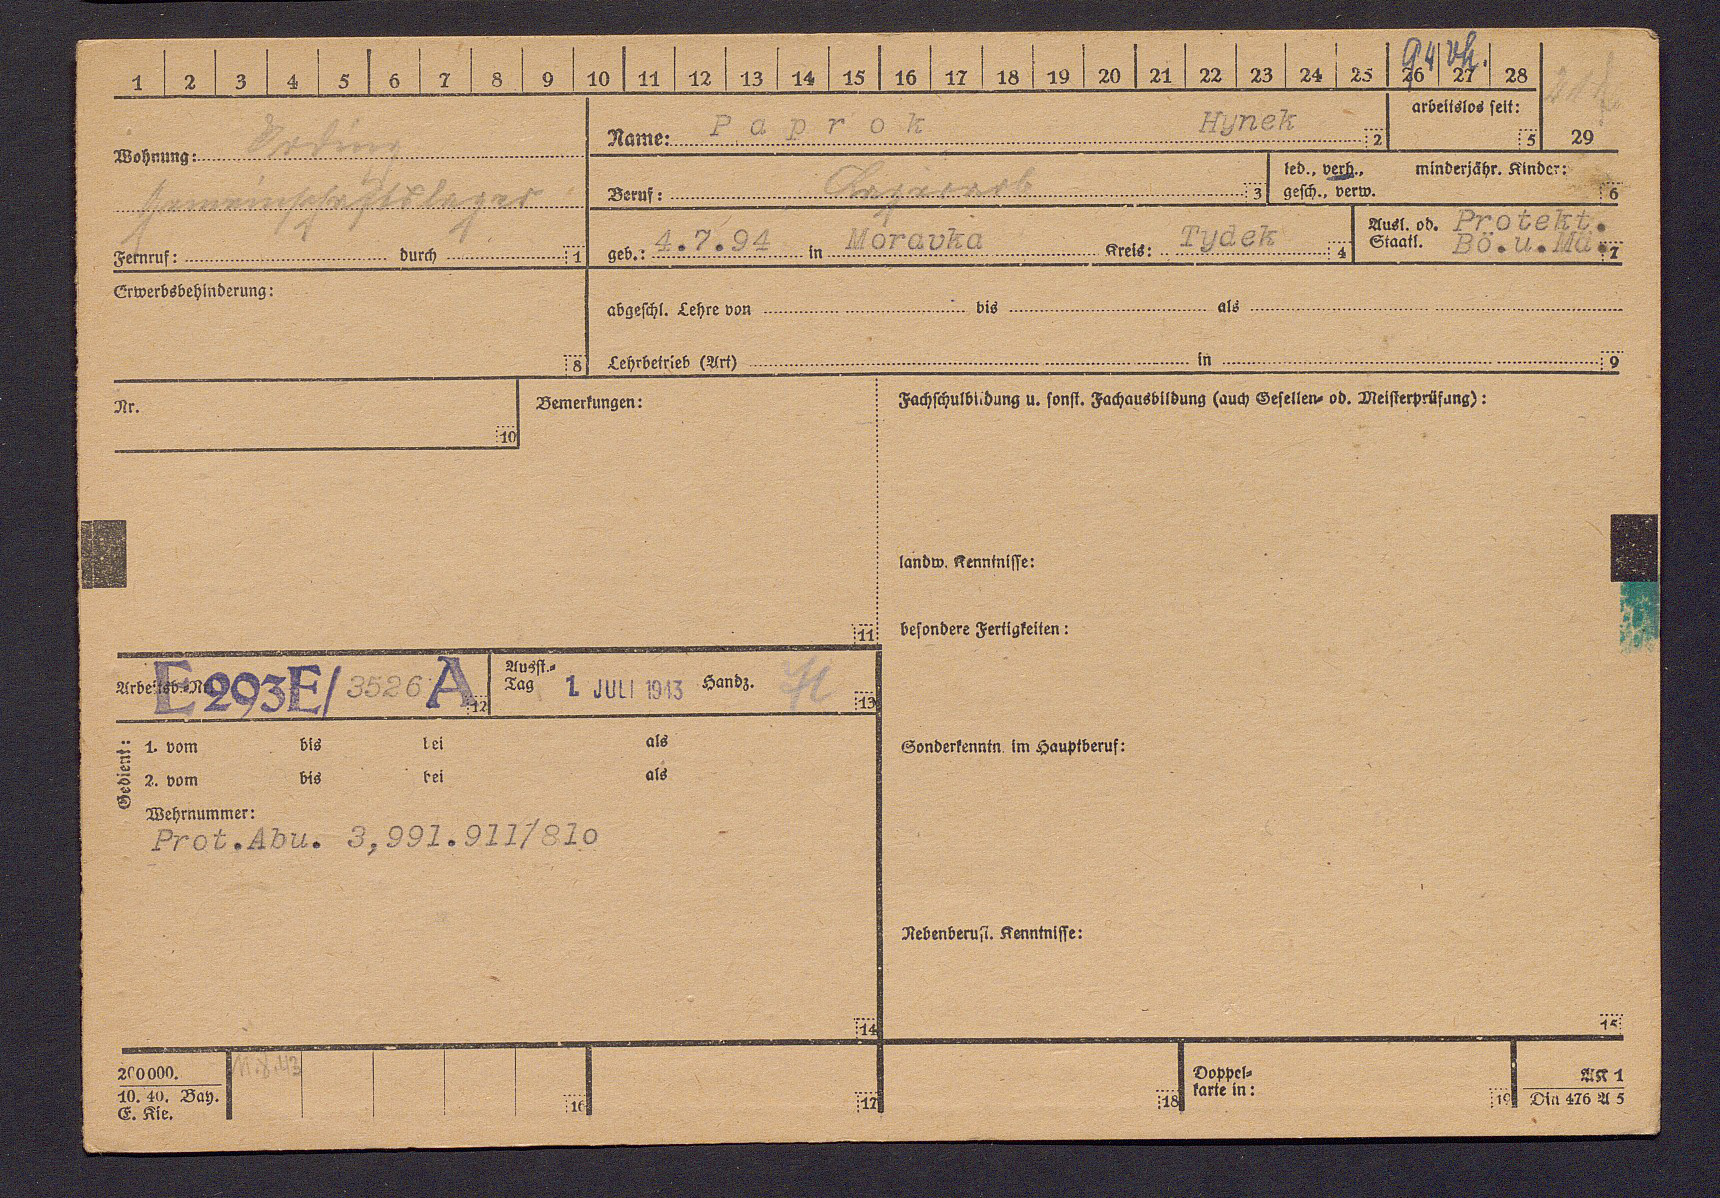 1 2 3 4 5 6 7 8 9 10 11 12 13 14 15 16 17 18 19 20 21 22 23 24 25 26 27 28
94 vh.
arbeitslos seit: 5
29
Wohnung: Erding
Gemeinschaftslager
Fernruf: durch 1
Name: Paprok Hynek 2
Beruf: 3
led., verh., minderjähr. Kinder:
gesch., verw. 6
geb.: 4.7.94 in Moravka Kreis: Tydek 4
Ausl. od. Protekt.
Staatl. Bö.u.Mä. 7
Erwerbsbehinderung:
8
abgeschl. Lehre von bis als
Lehrbetrieb (Art) in 9
Nr.
10
Bemerkungen:
11
Fachschulbildung u. sonst. Fachausbildung (auch Gesellen- od. Meisterprüfung):
landw. Kenntnisse:
besondere Fertigkeiten:
Arbeitsb.-Nr. E 293E/3526 A 12
Ausst.-
Tag 1 JULI 1943 Handz. 13
Sonderkenntn. im Hauptberuf:
Gedient:
1. vom bis bei als
2. vom bis bei als
Wehrnummer:
Prot.Abu. 3,991.911/81o
Nebenberufl. Kenntnisse:
14
15
200000.
10. 40. Bay.
E. Kie.
11.8.43
16
17
18
Doppel-
karte in:
19
AK 1
Din 476 A 5